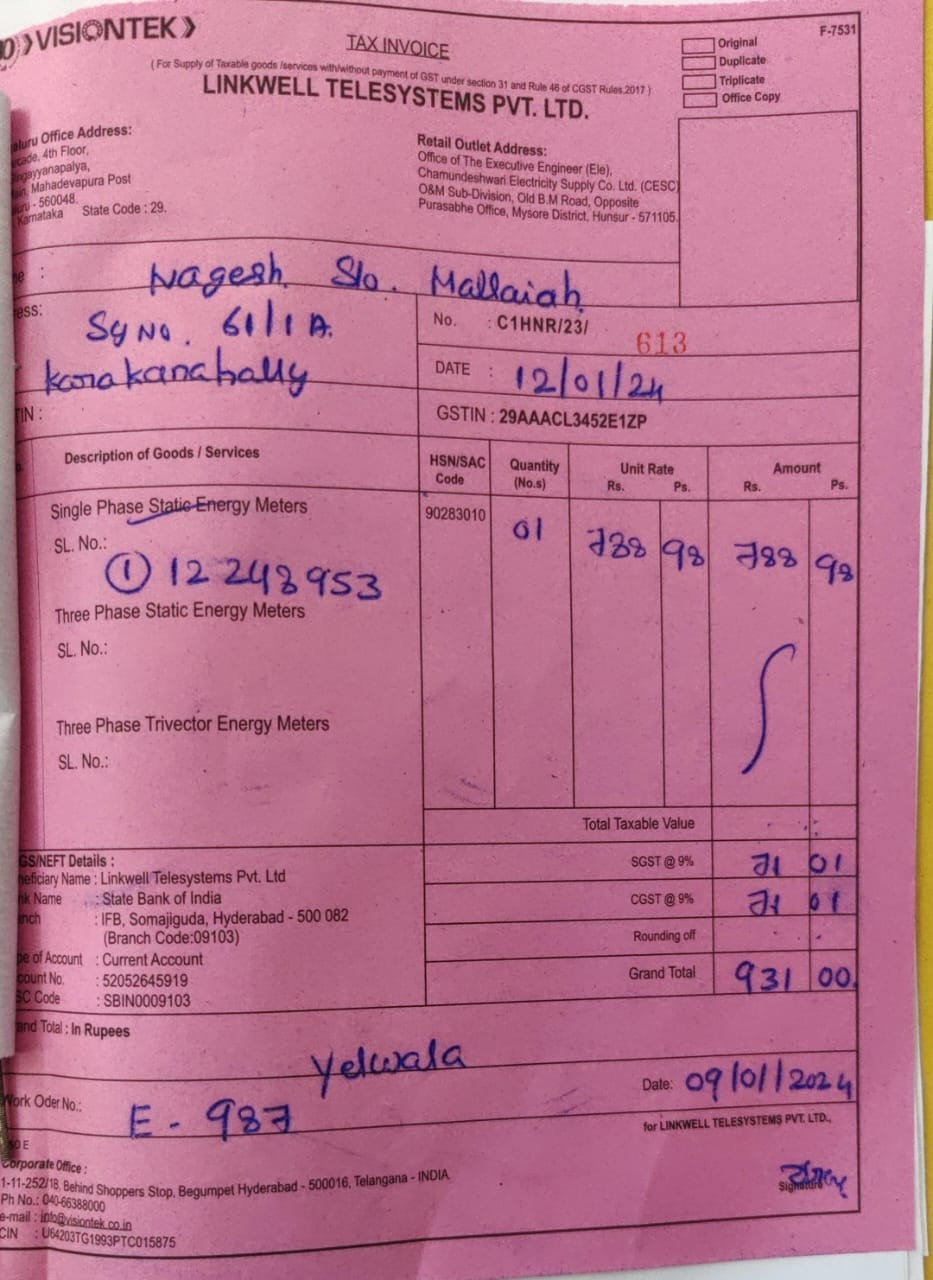 VISIONTEK
TAX INVOICE
F-7531
Original
Duplicate
Triplicate
Office Copy
( For Supply of Taxable goods /services with/without payment of GST under section 31 and Rule 46 of CGST Rules,2017 )
LINKWELL TELESYSTEMS PVT. LTD.
Office Address:
4th Floor,
Mahadevapura Post
- 560048.
Karnataka State Code : 29.
Retail Outlet Address:
Office of The Executive Engineer (Ele),
Chamundeshwari Electricity Supply Co. Ltd. (CESC)
O&M Sub-Division, Old B.M Road, Opposite
Purasabhe Office, Mysore District, Hunsur - 571105.
Nagesh S/o. Mallaiah
Sy No. 61/1A.
Karakanahally
No. : C1HNR/23/ 613
DATE : 12/01/24
GSTIN : 29AAACL3452E1ZP
Description of Goods / Services
HSN/SAC Code
Quantity (No.s)
Unit Rate Rs. Ps.
Amount Rs. Ps.
Single Phase Static Energy Meters
90283010 01 788 98 788 98
SL. No.:
① 12248953
Three Phase Static Energy Meters
SL. No.:
Three Phase Trivector Energy Meters
SL. No.:
Total Taxable Value
SGST @ 9% 71 01
CGST @ 9% 71 01
Rounding off
Grand Total 931 00
GS/NEFT Details :
Name : Linkwell Telesystems Pvt. Ltd
Name : State Bank of India
: IFB, Somajiguda, Hyderabad - 500 082
(Branch Code:09103)
of Account : Current Account
No. : 52052645919
Code : SBIN0009103
Total : In Rupees
Yelwala
Work Oder No.: E - 987
Date: 09/01/2024
for LINKWELL TELESYSTEMS PVT. LTD.,
Signature
Corporate Office :
1-11-252/18, Behind Shoppers Stop, Begumpet Hyderabad - 500016, Telangana - INDIA
Ph No.: 040-66388000
e-mail : info@visiontek.co.in
CIN : U64203TG1993PTC015875